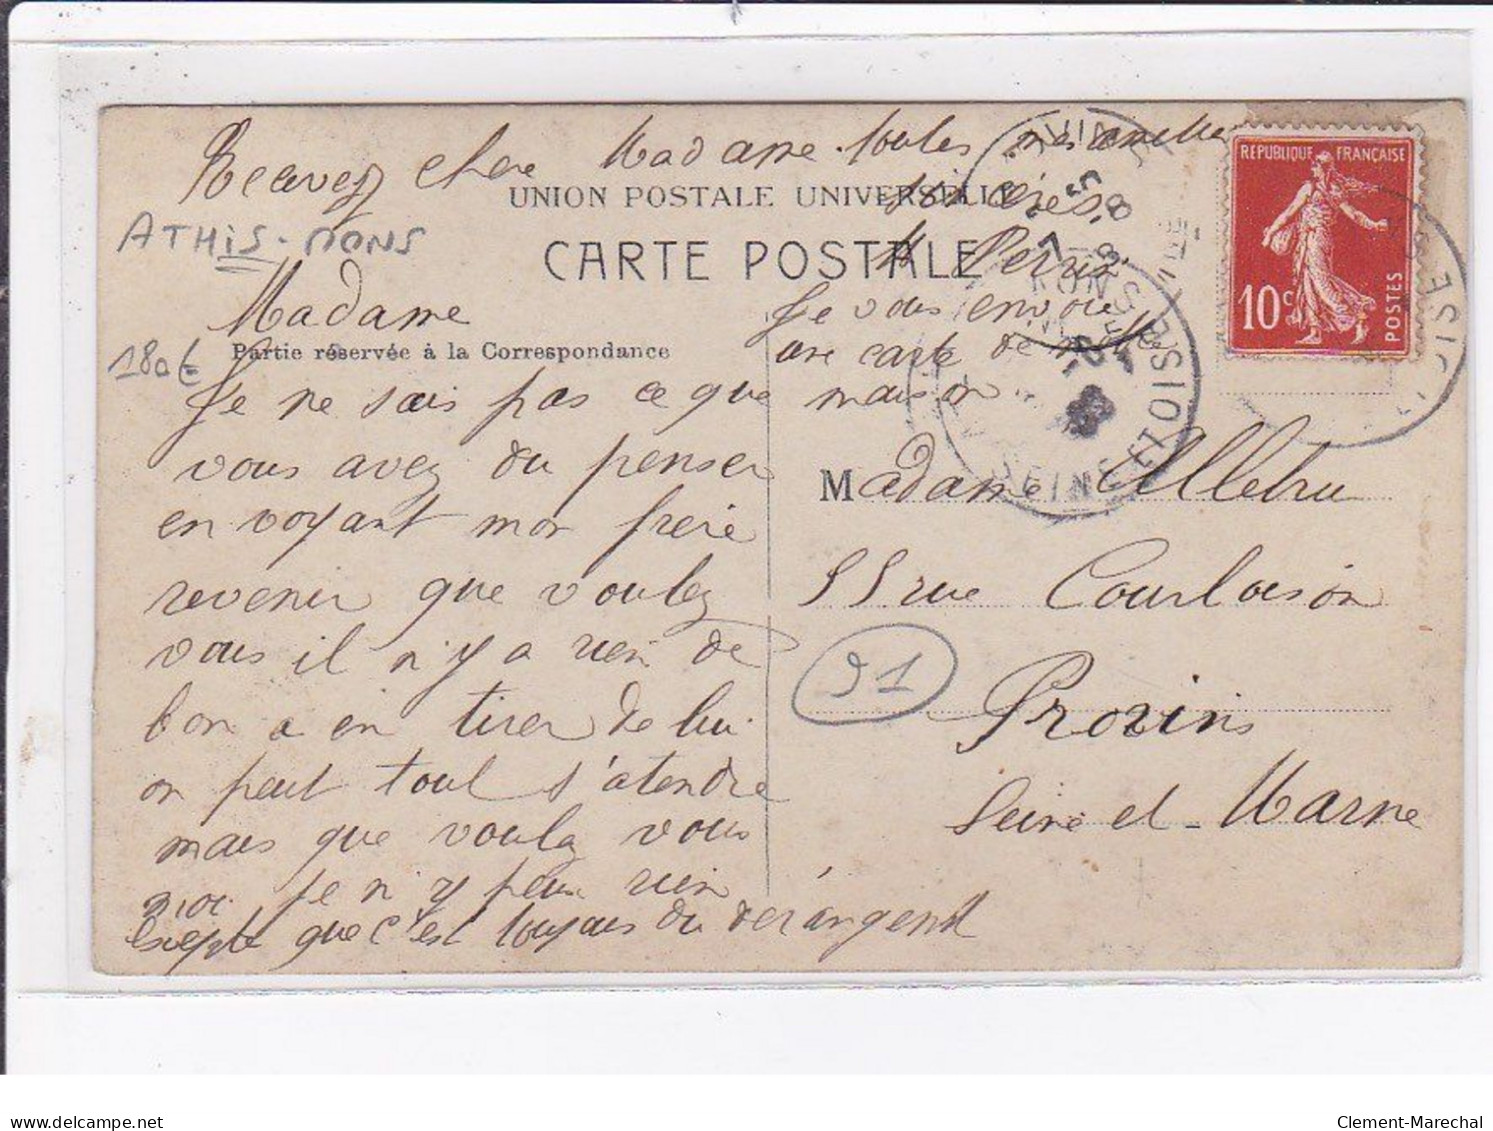 Recevez chere Madame toutes mes amitiés
sincères
UNION POSTALE UNIVERSELLE
ATHIS-MONS
CARTE POSTALE
M Perrin
Madame
180 €
Partie réservée à la Correspondance
Je ne sais pas ce que
vous avez du penser
en voyant mon frere
revenir que voulez
vous il n'y a rien de
bon a en tirer de lui
on peut tout s'atendre
mais que voulez vous
moi je n'y peux rien
c'est toujours du derangent
Je vous envoie
une carte de
maison
REPUBLIQUE FRANÇAISE
10c
POSTES
SEINE ET OISE
Madame Allebru
55 rue Courloison
91
Provins
Seine et Marne
Clement-Marechal